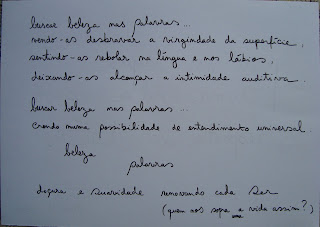 buscar beleza nas palavras...
vendo-as desbravar a virgindade da superfície,
sentindo-as rebolar na língua e nos lábios,
deixando-as alcançar a intimidade auditiva.
buscar beleza nas palavras...
crendo numa possibilidade de entendimento universal.
beleza
palavras
doçura e suavidade renovando cada ser
(quem nos sopra a vida assim?)